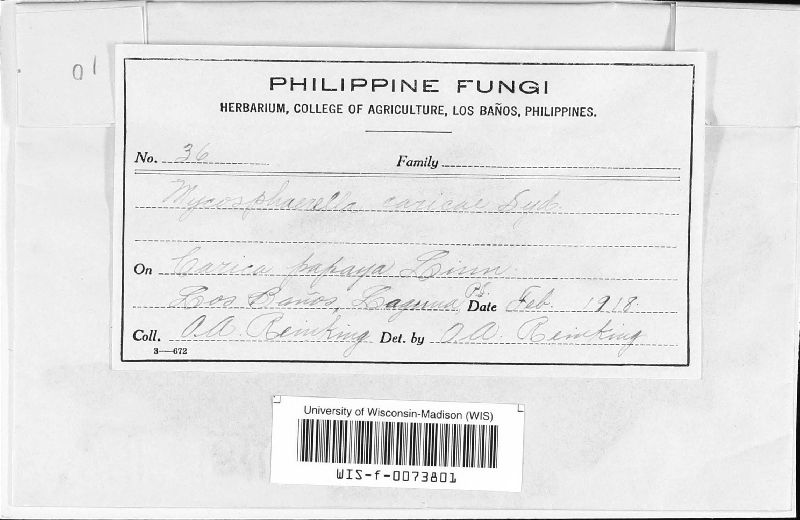 01
PHILIPPINE FUNGI
HERBARIUM, COLLEGE OF AGRICULTURE, LOS BAÑOS, PHILIPPINES.
No. 36 Family
Mycosphaerella caricae Syd.
On Carica papaya Linn.
Los Banos, Laguna, P.I. Date Feb. 1918
Coll. O.A. Reinking Det. by O.A. Reinking
3—672
University of Wisconsin-Madison (WIS)
WIS-f-0073801